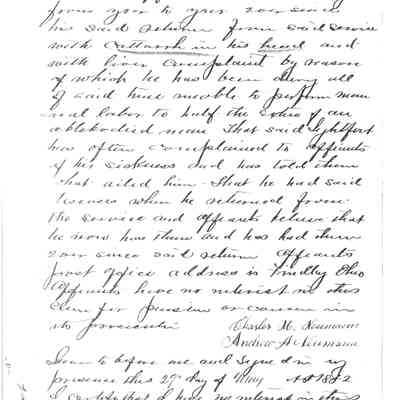 from year to year ever since
his said return from said service
with Cattarrh in his head and
with liver complaint by reason
of which he has been during all
of said time unable to perform man
ual labor to half the extent of an
ablebodied man That said Lightfoot
has often complained to affiants
of his sickness and has told them
what ailed him. That he had said
when he returned from
the service and affiants believe that
he now has them and has had them
ever since said return Affiants
post office address is Ohio
Affiants have no interest in this
claim for pension or concern in
its prosecution
Charles M. Neumann
Andrew H Neumann
Sworn to before me and signed in my
presence this 29 day of May AD 1882
I certify that I have no interest in this